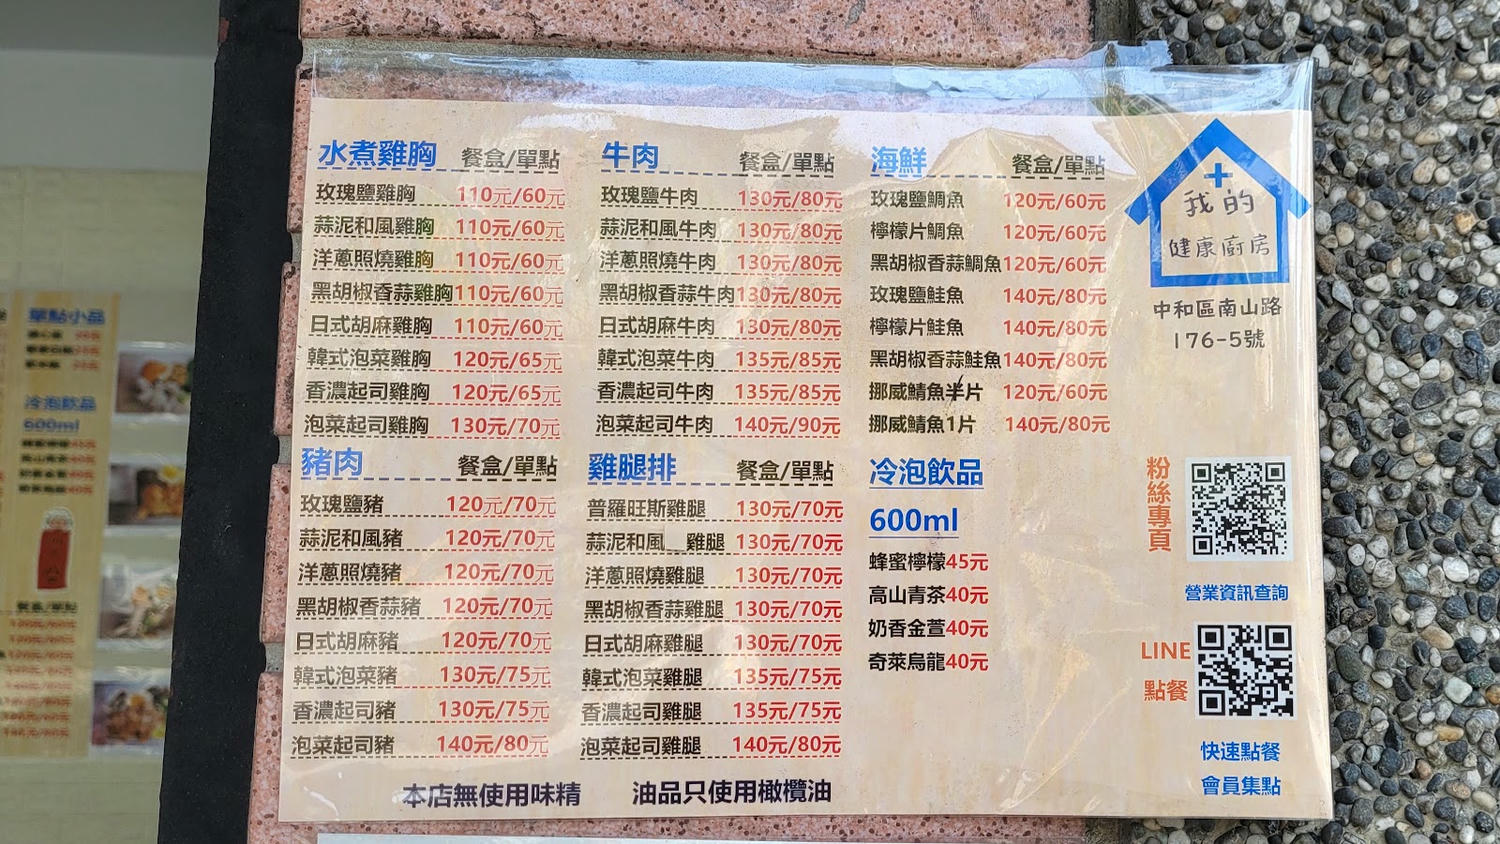 水煮雞胸 餐盒/單點
玫瑰鹽雞胸 110元/60元
蒜泥和風雞胸 110元/60元
洋蔥照燒雞胸 110元/60元
黑胡椒香蒜雞胸 110元/60元
日式胡麻雞胸 110元/60元
韓式泡菜雞胸 120元/65元
香濃起司雞胸 120元/65元
泡菜起司雞胸 130元/70元
豬肉 餐盒/單點
玫瑰鹽豬 120元/70元
蒜泥和風豬 120元/70元
洋蔥照燒豬 120元/70元
黑胡椒香蒜豬 120元/70元
日式胡麻豬 120元/70元
韓式泡菜豬 130元/75元
香濃起司豬 130元/75元
泡菜起司豬 140元/80元
牛肉 餐盒/單點
玫瑰鹽牛肉 130元/80元
蒜泥和風牛肉 130元/80元
洋蔥照燒牛肉 130元/80元
黑胡椒香蒜牛肉 130元/80元
日式胡麻牛肉 130元/80元
韓式泡菜牛肉 135元/85元
香濃起司牛肉 135元/85元
泡菜起司牛肉 140元/90元
雞腿排 餐盒/單點
普羅旺斯雞腿 130元/70元
蒜泥和風 雞腿 130元/70元
洋蔥照燒雞腿 130元/70元
黑胡椒香蒜雞腿 130元/70元
日式胡麻雞腿 130元/70元
韓式泡菜雞腿 135元/75元
香濃起司雞腿 135元/75元
泡菜起司雞腿 140元/80元
海鮮 餐盒/單點
玫瑰鹽鯛魚 120元/60元
檸檬片鯛魚 120元/60元
黑胡椒香蒜鯛魚 120元/60元
玫瑰鹽鮭魚 140元/80元
檸檬片鮭魚 140元/80元
黑胡椒香蒜鮭魚 140元/80元
挪威鯖魚半片 120元/60元
挪威鯖魚1片 140元/80元
冷泡飲品
600ml
蜂蜜檸檬45元
高山青茶40元
奶香金萱40元
奇萊烏龍40元
我的
健康廚房
中和區南山路
176-5號
粉絲專頁
營業資訊查詢
LINE
點餐
快速點餐
會員集點
本店無使用味精 油品只使用橄欖油
單點小品
冷泡飲品
600ml